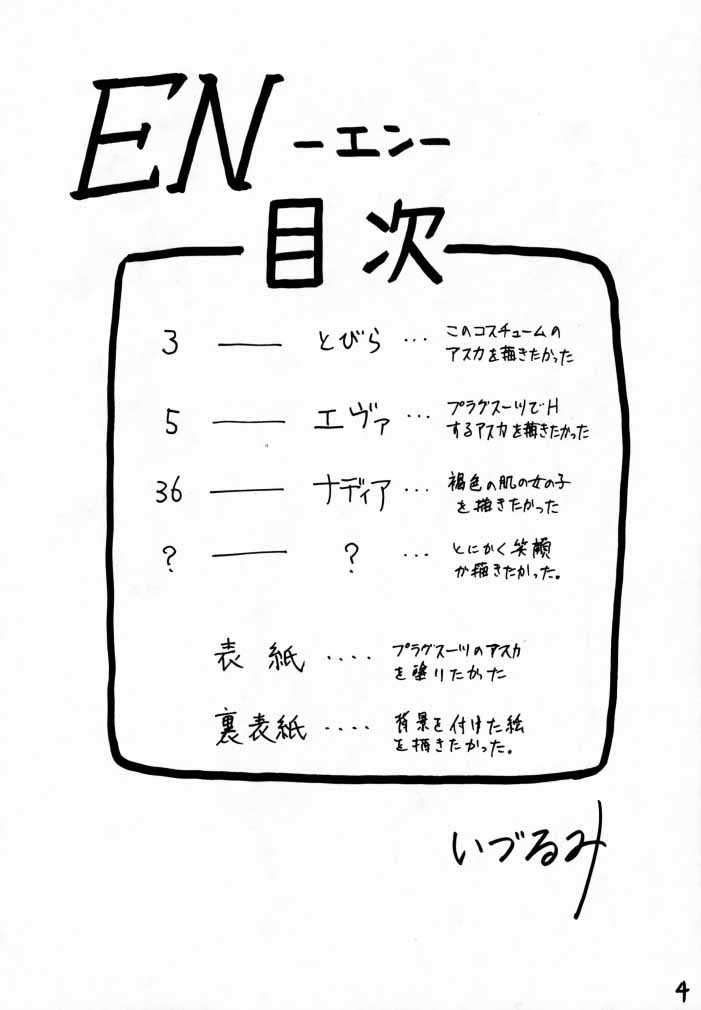 EN ーエンー
目次
3 ── とびら … このコスチュームの
アスカを描きたかった
5 ── エヴァ … プラグスーツでH
するアスカを描きたかった
36 ── ナディア … 褐色の肌の女の子
を描きたかった
? ── ? … とにかく笑顔
が描きたかった。
表紙 ‥‥ プラグスーツのアスカ
を塗りたかった
裏表紙 ‥‥ 背景を付けた絵
を描きたかった。
いづるみ
4